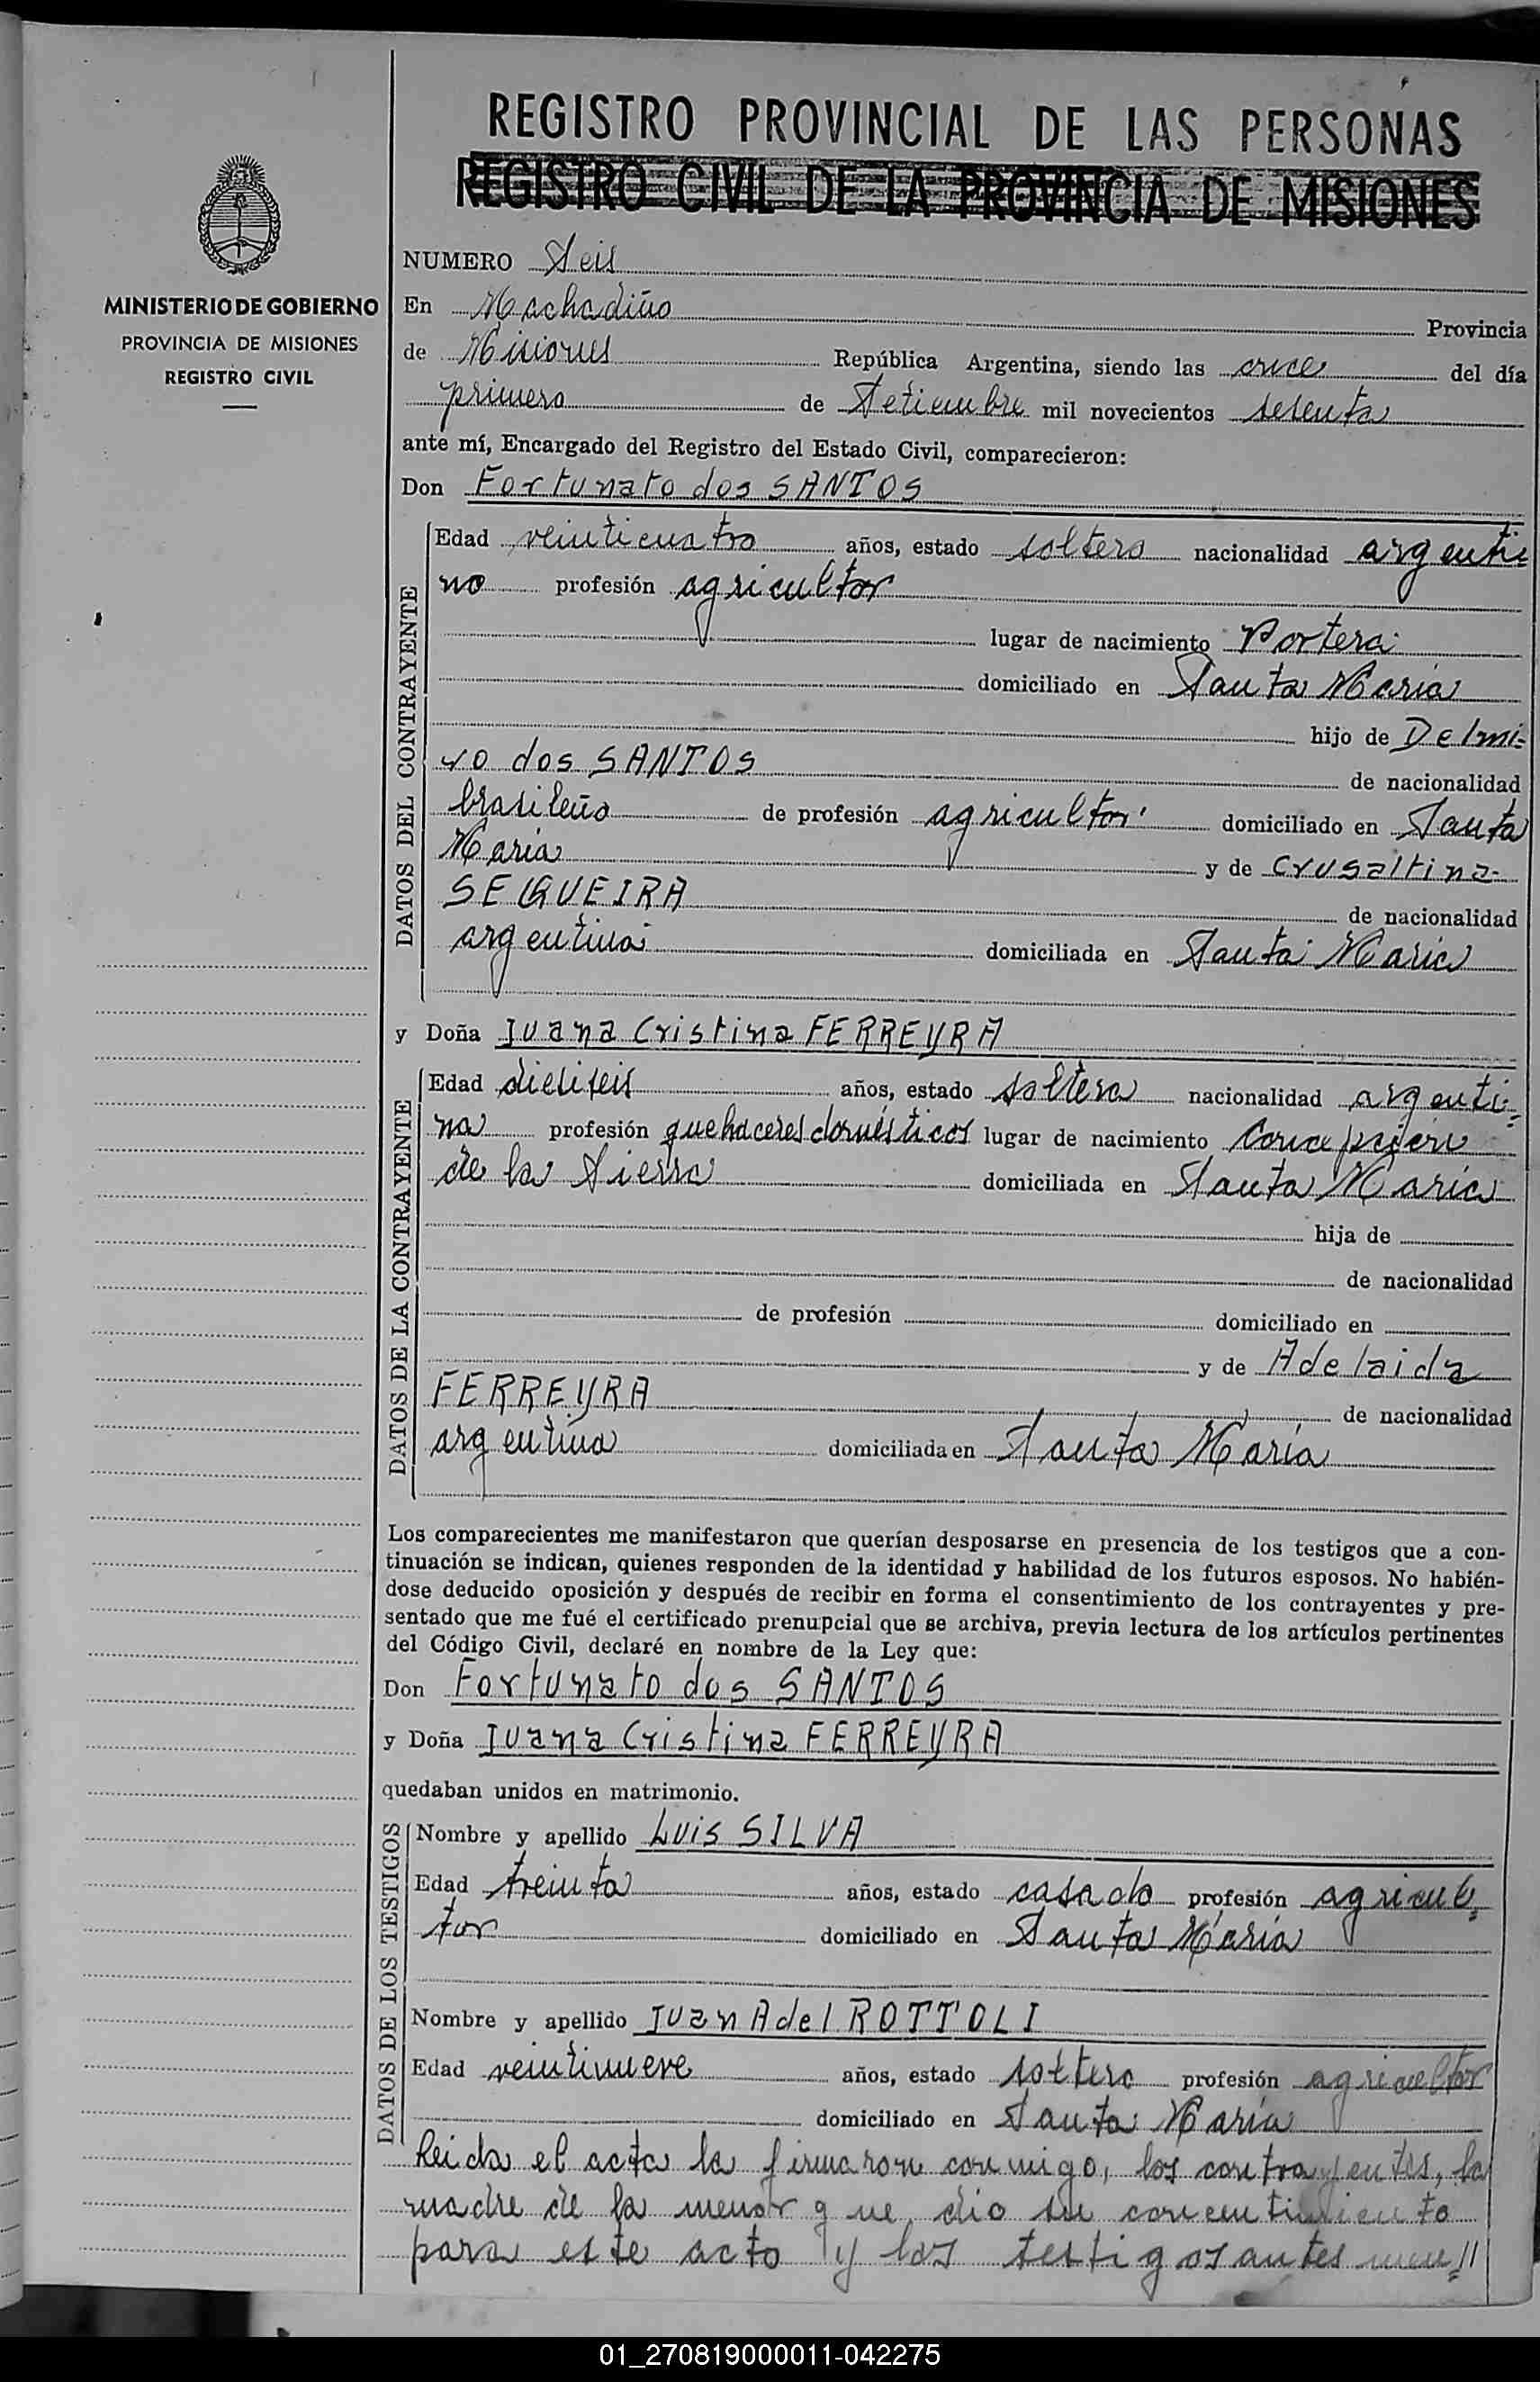 REGISTRO PROVINCIAL DE LAS PERSONAS
REGISTRO CIVIL DE LA PROVINCIA DE MISIONES
MINISTERIO DE GOBIERNO
PROVINCIA DE MISIONES
REGISTRO CIVIL
NUMERO Seis
En Machadiño Provincia
de Misiones República Argentina, siendo las once del día
primero de Setiembre mil novecientos sesenta
ante mí, Encargado del Registro del Estado Civil, comparecieron:
Don Fortunato dos SANTOS
DATOS DEL CONTRAYENTE
Edad veinticuatro años, estado soltero nacionalidad argenti
no profesión agricultor
lugar de nacimiento Portera
domiciliado en Santa María
hijo de Delmi-
ro dos SANTOS de nacionalidad
brasileño de profesión agricultor domiciliado en Santa
María y de Crusaltina
SEQUEIRA de nacionalidad
argentina domiciliada en Santa María
y Doña Juana Cristina FERREYRA
DATOS DE LA CONTRAYENTE
Edad dieciseis años, estado soltera nacionalidad argenti-
na profesión quehaceres domésticos lugar de nacimiento Concepción
de la Sierra domiciliada en Santa María
hija de
de nacionalidad
de profesión domiciliado en
y de Adelaida
FERREYRA de nacionalidad
argentina domiciliada en Santa María
Los comparecientes me manifestaron que querían desposarse en presencia de los testigos que a con-
tinuación se indican, quienes responden de la identidad y habilidad de los futuros esposos. No habién-
dose deducido oposición y después de recibir en forma el consentimiento de los contrayentes y pre-
sentado que me fué el certificado prenupcial que se archiva, previa lectura de los artículos pertinentes
del Código Civil, declaré en nombre de la Ley que:
Don Fortunato dos SANTOS
y Doña Juana Cristina FERREYRA
quedaban unidos en matrimonio.
DATOS DE LOS TESTIGOS
Nombre y apellido Luis SILVA
Edad treinta años, estado casado profesión agricul-
tor domiciliado en Santa María
Nombre y apellido Juan Adel ROTTOLI
Edad veintinueve años, estado soltero profesión agricultor
domiciliado en Santa María
Leida el acta la firmaron conmigo, los contrayentes, la
madre de la menor que dio su concentimiento
para este acto y los testigos antes men//
01_270819000011-042275